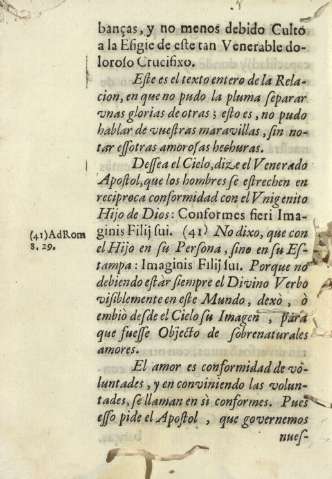 banças, y no menos debido Culto
a la Efigie de este tan Venerable do-
loroso Crucifixo.
Este es el texto entero de la Rela-
cion, en que no pudo la pluma separar
vnas glorias de otras; esto es, no pudo
hablar de vuestras maravillas, sin no-
tar essotras amorosas hechuras.
Dessea el Cielo, dize el Venerado
Apostol, que los hombres se estrechen en
reciproca conformidad con el Vnigenito
Hijo de Dios: Conformes fieri Ima-
ginis Filij sui. (41) No dixo, que con
el Hijo en su Persona, sino en su Es-
tampa: Imaginis Filij sui. Porque no
debiendo estàr siempre el Divino Verbo
visiblemente en este Mundo, dexò, ò
embiò desde el Cielo su Imagen, para
que fuesse Objecto de sobrenaturales
amores.
El amor es conformidad de vo-
luntades, y en conviniendo las volun-
tades, se llaman en sì conformes. Pues
esso pide el Apostol, que governemos
nues-
(41) Ad Rom
8. 29.